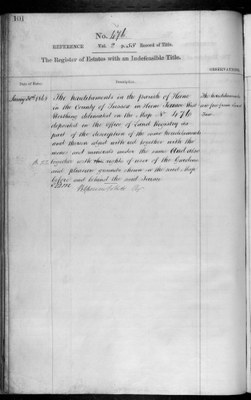 101
No. 476
REFERENCE Vol. 2 p. 151 Record of Title.
The Register of Estates with an Indefeasible Title.
Date of Entry. Description. OBSERVATIONS.
January 30th 1865 The hereditaments in the parish of Hove
in the County of Sussex
delineated in the Map No 476
deposited in the Office of Land Registry as
part of the description of the said hereditaments
and thereon edged with red together with the
mines and minerals under the same And also
together with the right of user of the Gardens
and pleasure grounds shewn in the said Map
before and behind the said
The hereditaments
are free from Land
Tax